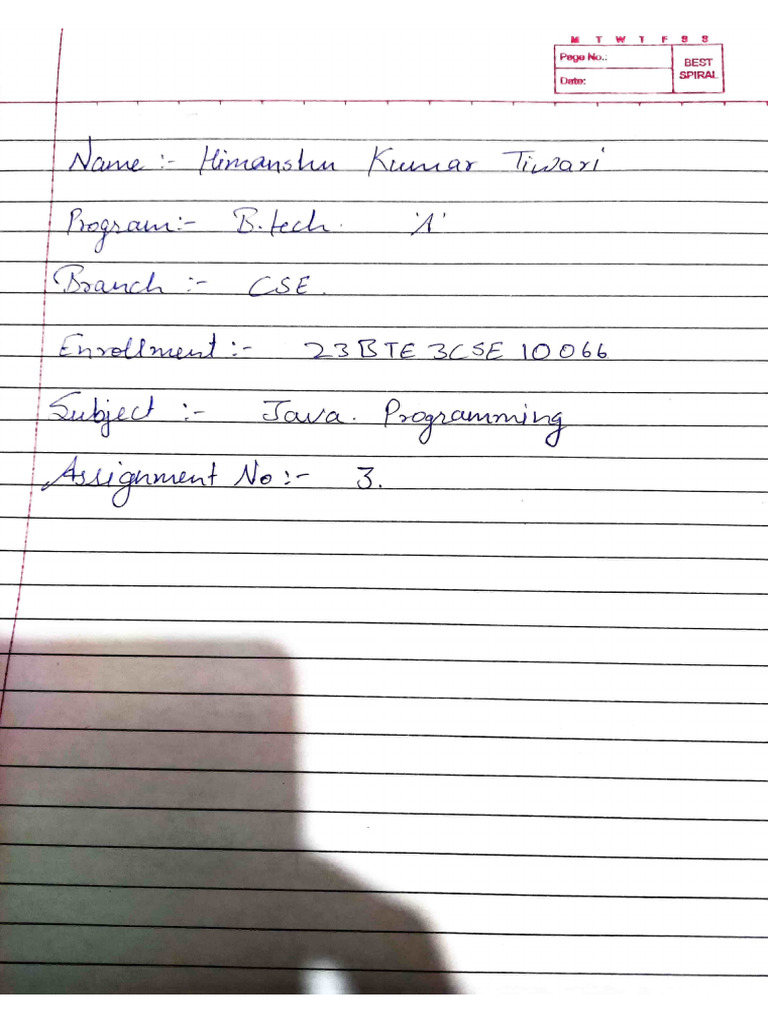 M T W T F S S
Page No.:
BEST
SPIRAL
Date:
Name :- Himanshu Kumar Tiwari
Program:- B.tech. 'A'
Branch :- CSE.
Enrollment :- 23BTE3CSE10066
Subject :- Java. Programming
Assignment No :- 3.